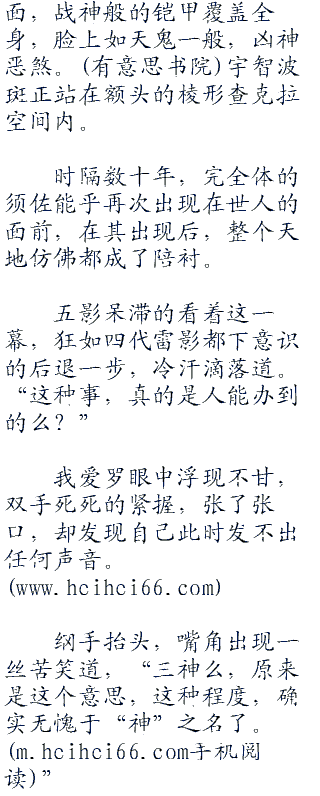 面，战神般的铠甲覆盖全
身，脸上如天鬼一般，凶神
恶煞。(有意思书院)宇智波
斑正站在额头的棱形查克拉
空间内。
时隔数十年，完全体的
须佐能乎再次出现在世人的
面前，在其出现后，整个天
地仿佛都成了陪衬。
五影呆滞的看着这一
幕，狂如四代雷影都下意识
的后退一步，冷汗滴落道。
“这种事，真的是人能办到
的么？”
我爱罗眼中浮现不甘，
双手死死的紧握，张了张
口，却发现自己此时发不出
任何声音。
(www.hcihci66.com)
纲手抬头，嘴角出现一
丝苦笑道，“三神么，原来
是这个意思，这种程度，确
实无愧于“神”之名了。
(m.hcihci66.com手机阅
读)”